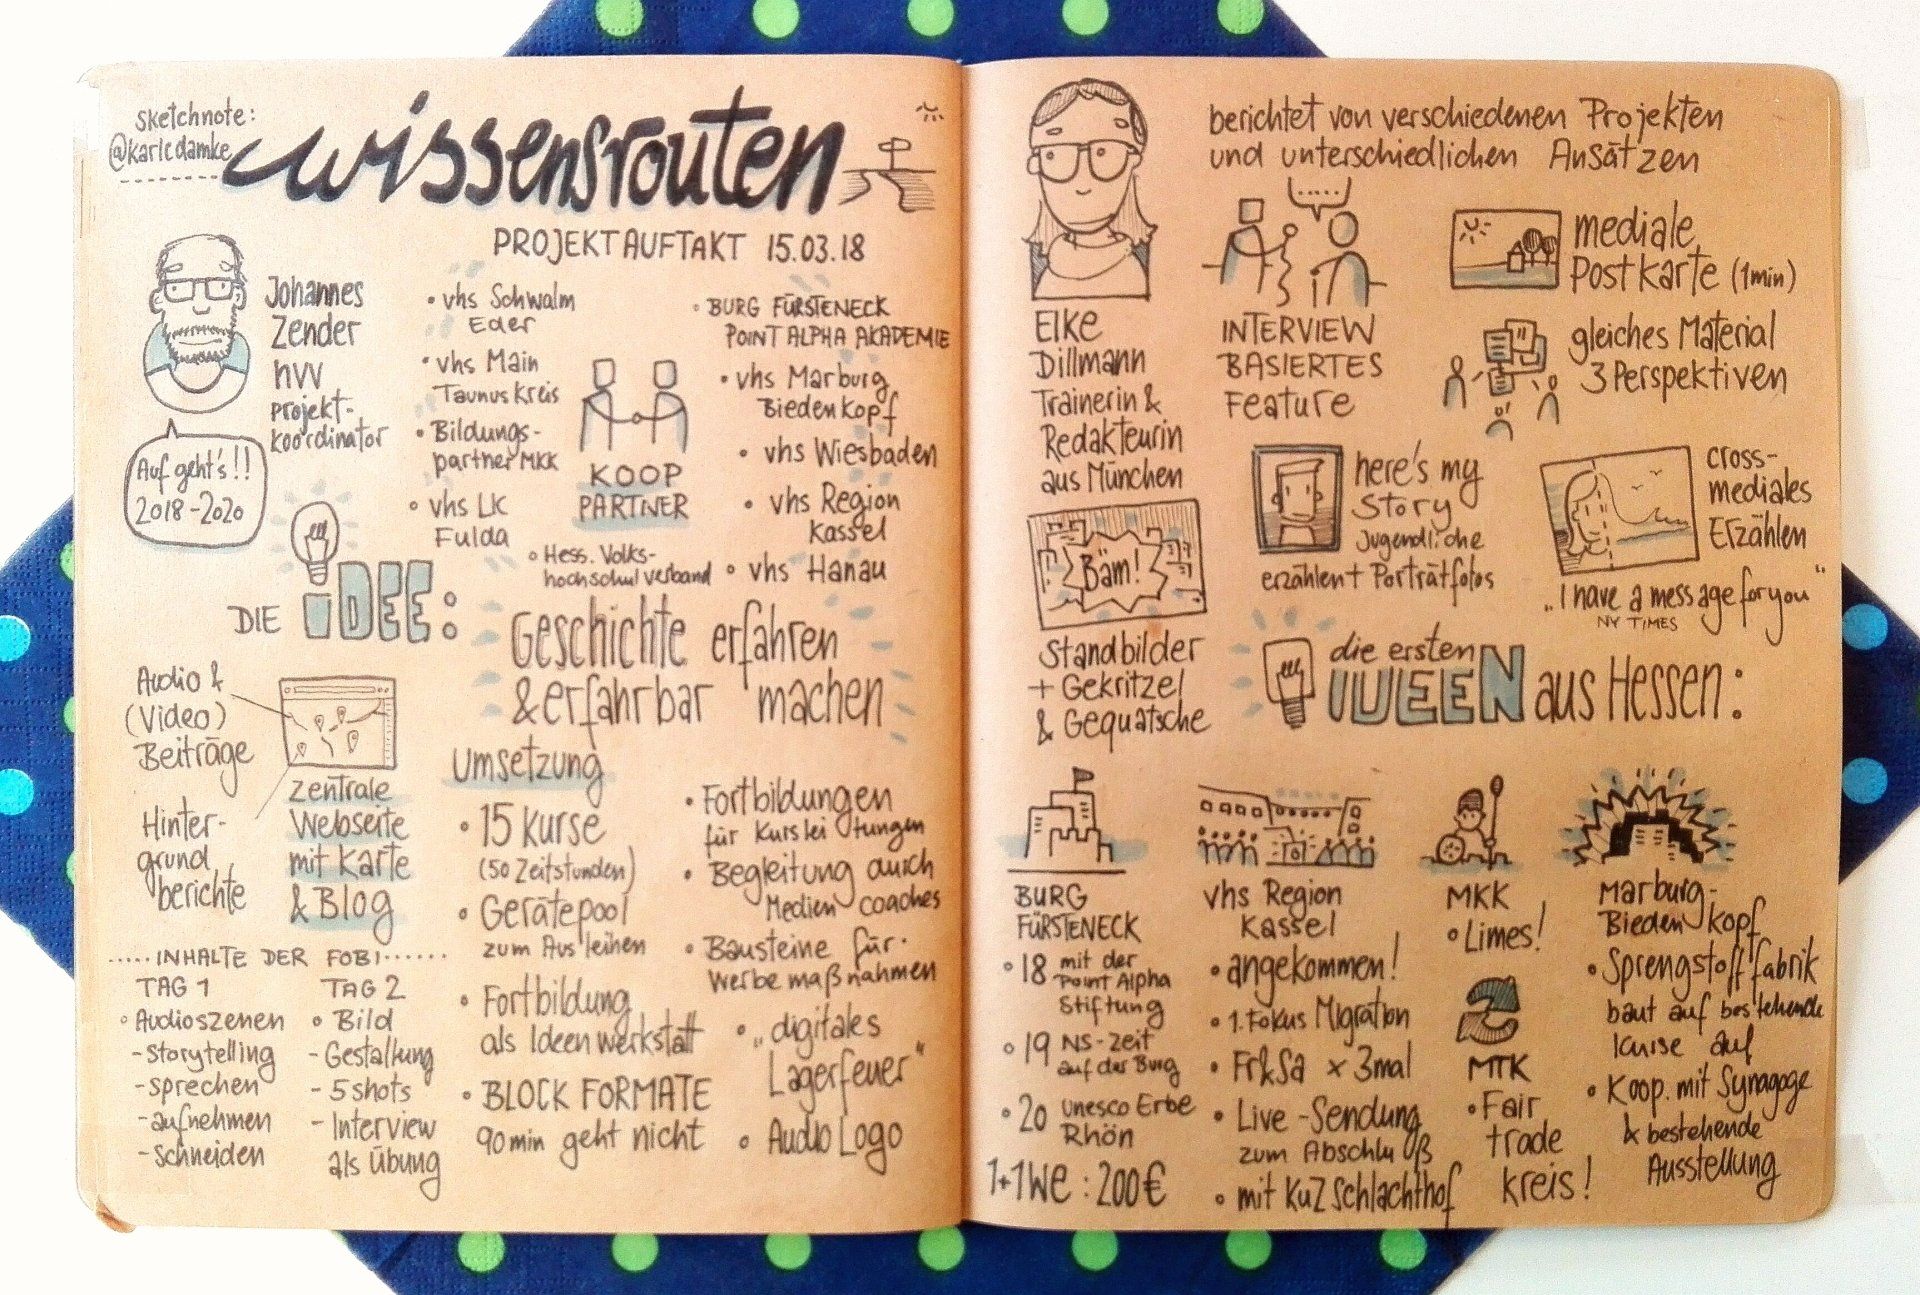 Sketchnote:
@karlcdamke
wissensrouten
PROJEKTAUFTAKT 15.03.18
Johannes
Zender
hvv
Projekt-
koordinator
Auf geht's!!
2018-2020
• vhs Schwalm
Eder
• vhs Main
Taunus Kreis
• Bildungs-
partner MKK
• vhs LK
Fulda
• Hess. Volks-
hochschulverband
KOOP
PARTNER
• BURG FÜRSTENECK
POINT ALPHA AKADEMIE
• vhs Marburg
Biedenkopf
• vhs Wiesbaden
• vhs Region
Kassel
• vhs Hanau
DIE IDEE:
Geschichte erfahren
& erfahrbar machen
Audio &
(Video)
Beiträge
Hinter-
grund
berichte
zentrale
Webseite
mit Karte
& Blog
INHALTE DER FOBI
TAG 1
• Audioszenen
- Storytelling
- sprechen
- aufnehmen
- schneiden
TAG 2
• Bild
- Gestaltung
- 5 shots
- Interview
als Übung
Umsetzung
• 15 Kurse
(50 Zeitstunden)
• Gerätepool
zum Ausleihen
• Fortbildung
als Ideenwerkstatt
• BLOCK FORMATE
90 min geht nicht
• Fortbildungen
für Kursleitungen
• Begleitung durch
Medien coaches
• Bausteine für
Werbemaßnahmen
• „digitales
Lagerfeuer"
• Audio Logo
Elke
Dillmann
Trainerin &
Redakteurin
aus München
berichtet von verschiedenen Projekten
und unterschiedlichen Ansätzen
.....
INTERVIEW
BASIERTES
Feature
mediale
Postkarte (1min)
gleiches Material
3 Perspektiven
Bäm!
Standbilder
+ Gekritzel
& Gequatsche
here's my
Story
Jugendliche
erzählen + Porträtfotos
cross-
mediales
Erzählen
„I have a message for you"
NY TIMES
die ersten
IDEEN aus Hessen:
BURG
FÜRSTENECK
• 18 mit der
Point Alpha
Stiftung
• 19 NS-Zeit
auf der Burg
• 20 Unesco Erbe
Rhön
1+1 WE: 200€
vhs Region
Kassel
• angekommen!
• 1. Fokus Migration
• Fr & Sa x 3mal
• Live-Sendung
zum Abschluß
• mit KUZ Schlachthof
MKK
• Limes!
MTK
• Fair
trade
kreis!
Marburg-
Biedenkopf
• Sprengstofffabrik
baut auf bestehende
Kurse auf
• Koop. mit Synagoge
& bestehende
Ausstellung